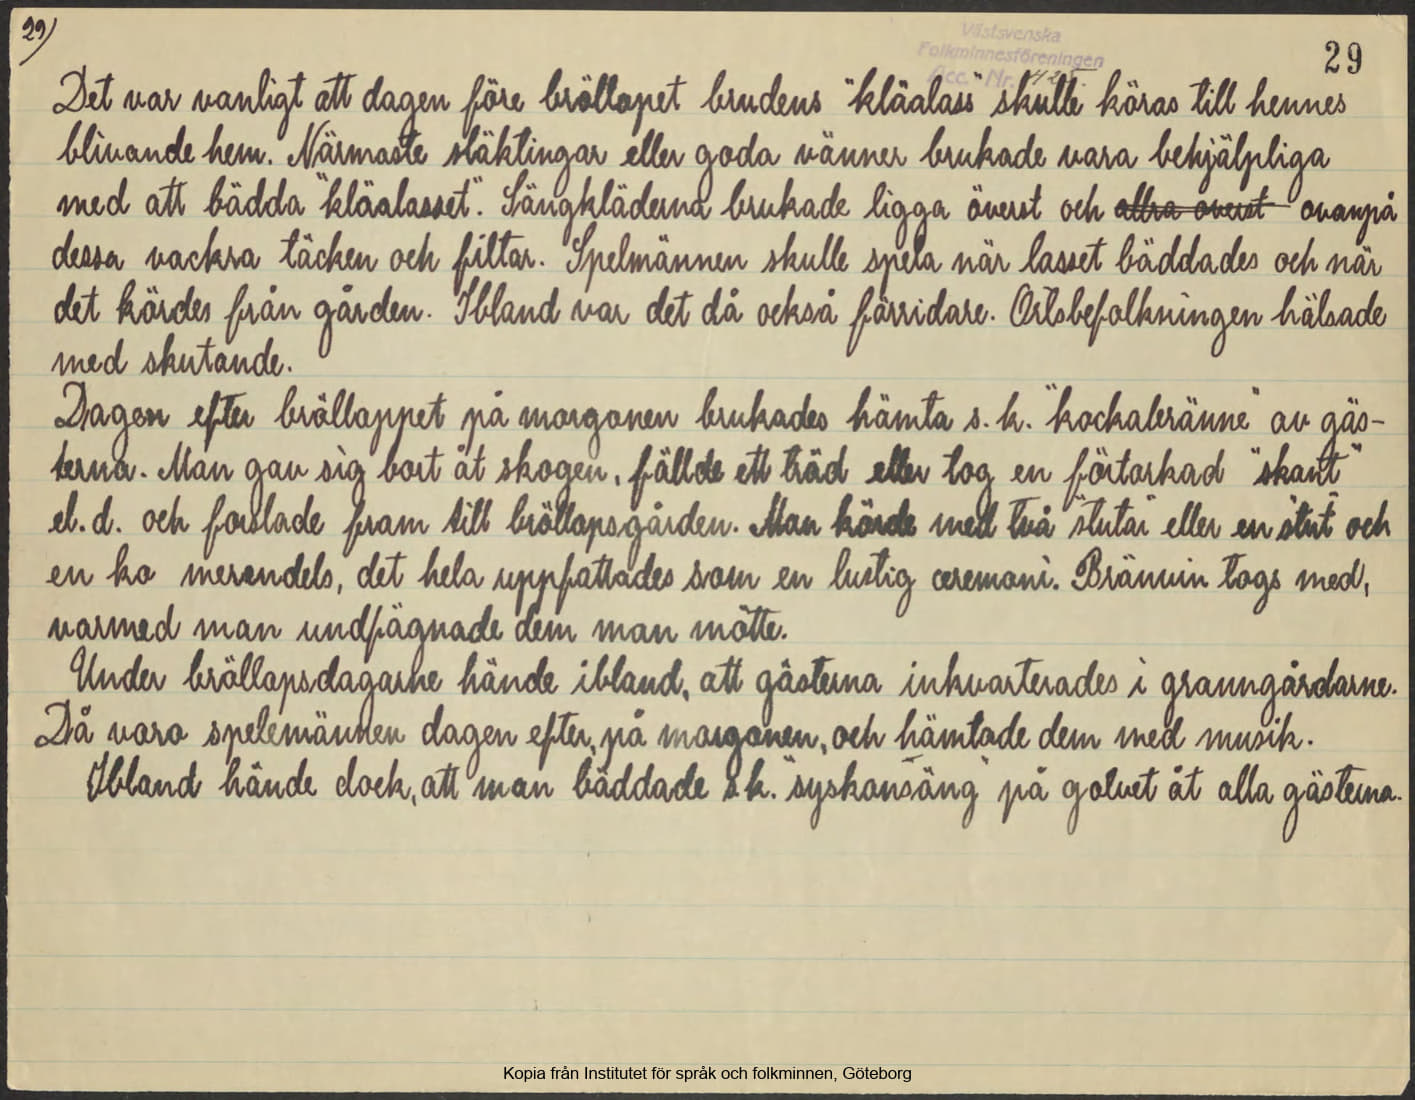 29)
Västsvenska
Folkminnesföreningen
Acc. Nr.
29
Det var vanligt att dagen före bröllopet brudens "kläalass" skulle köras till hennes
blivande hem. Närmaste släktingar eller goda vänner brukade vara behjälpliga
med att bädda "kläalasset". Sängkläderna brukade ligga överst och allra överst ovanpå
dessa vackra täcken och filtar. Spelmännen skulle spela när lasset bäddades och när
det kördes från gården. Ibland var det då också förridare. Ortsbefolkningen hälsade
med skutande.
Dagen efter brölloppet på morgonen brukades hämta s.k. "kockabränne" av gäs-
terna. Man gav sig bort åt skogen, fällde ett träd eller tog en förtorkad "skant"
el.d. och forslade fram till bröllopsgården. Man körde med två "stutar" eller en "stut" och
en ko merendels, det hela uppfattades som en lustig ceremoni. Bränvin togs med,
varmed man undfägnade dem man mötte.
Under bröllopsdagarne hände ibland, att gästerna inkvarterades i granngårdarne.
Då voro spelemännen dagen efter, på morgonen, och hämtade dem med musik.
Ibland hände dock, att man bäddade s.k. "syskonsäng" på golvet åt alla gästerna.
Kopia från Institutet för språk och folkminnen, Göteborg